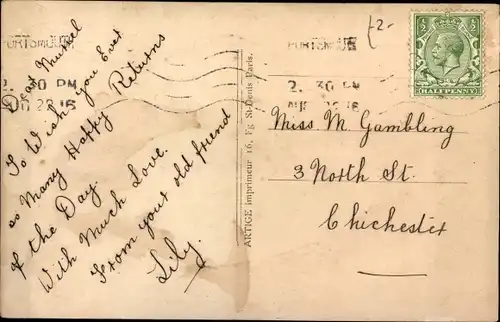 PORTSMOUTH
2. 30 PM
28 16
Dear Muriel
To Wish you Ever
so Many Happy Returns
of the Day.
With Much Love.
From your old friend
Lily.
ARTIGE imprimeur 16, Fg. St-Denis Paris.
£2-
PORTSMOUTH
2. 30 PM
½ ½
HALFPENNY
Miss M. Gambling
3 North St.
Chichester